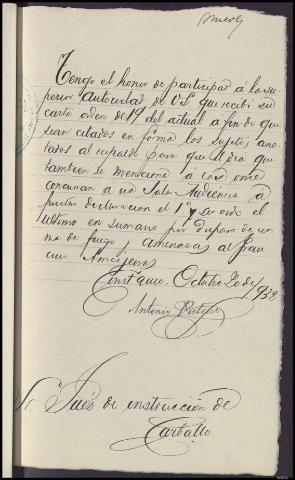 Tengo el honor de participar á la su
perior Autoridad de V.S. que recibi su
carta orden de 19 del actual a fin de que
sean citados en forma los sujetos ano
tados al respaldo para que el dia que
tambien se menciona á las once
concurran a esa Sala Audiencia a
prestar declaracion el 1º y ser oido el
ultimo en sumario por disparo de ar
ma de fuego y amenazas al
Octubre 20 de 1938
Antonio
Sr. Juéz de instrucción de
Carballo.